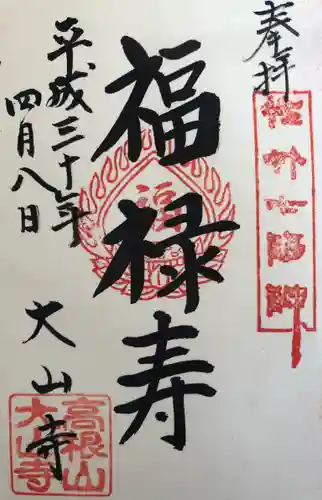 奉拝
福禄寿
福
平成三十年
四月八日
大山寺
高根山
大山寺